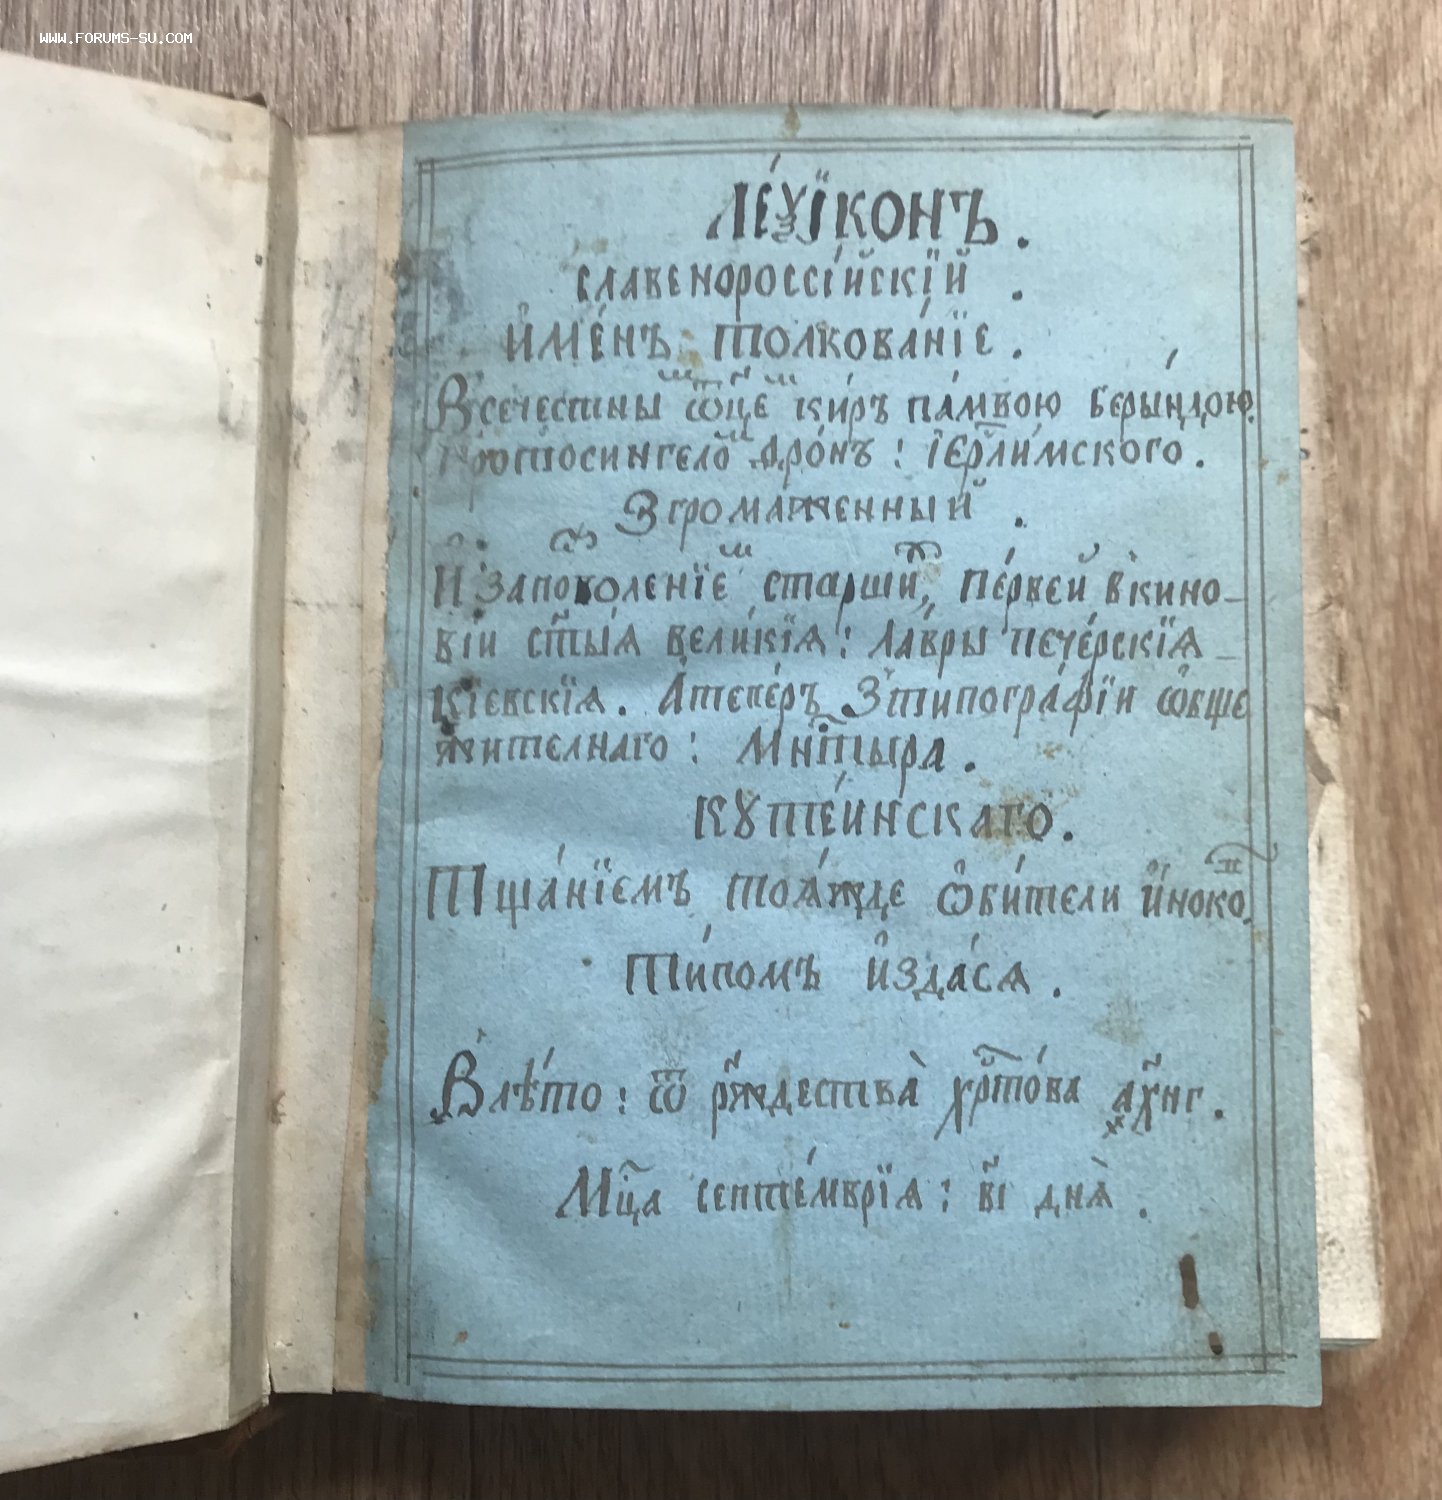 WWW.FORUMS-SU.COM
ЛЕѮЇКОНЪ.
славенороссі́йскїй.
и҆ме́нъ толкова́нїе.
Всечестны ѿце ки́ръ па́мвою бєры́ндою.
протосингело ѳро́нъ: їерⷭ҇ли́мского.
Згромаженный.
И запозволенїе старши, пе́рвей вкино_
вїи ст҃ы́ѧ вели́кїѧ: ла́вры пече́рскїѧ_
кїевскїѧ. А҆тепе́ръ Зтипогра́фїи ѻ҆бще
жителнаго: Мнⷭ҇тыра.
Кꙋте́инскаго.
Тща́нїемъ тоѧ́жде ѻ҆би́тели и҆ноко.
Ти́помъ и҆зда́сѧ.
Влѣ́то: ѿ ржⷭ҇дества̀ хрⷭ҇то́ва ҂ахнг.
Мцⷭ҇а септе́мврїѧ: в҃і днѧ̀.